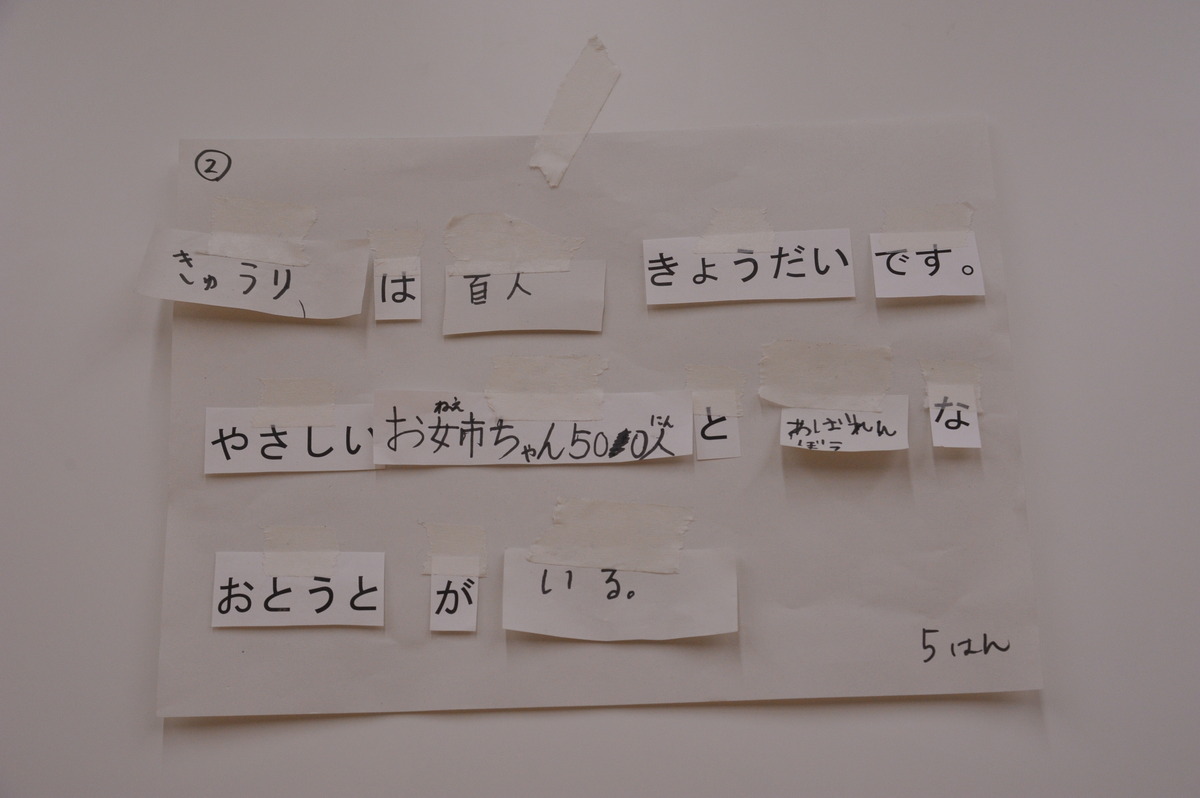 ②
きゅうり は 百人 きょうだい です。
やさしい お姉ちゃん50人 と あばれんぼう な
おとうと が いる。
5はん